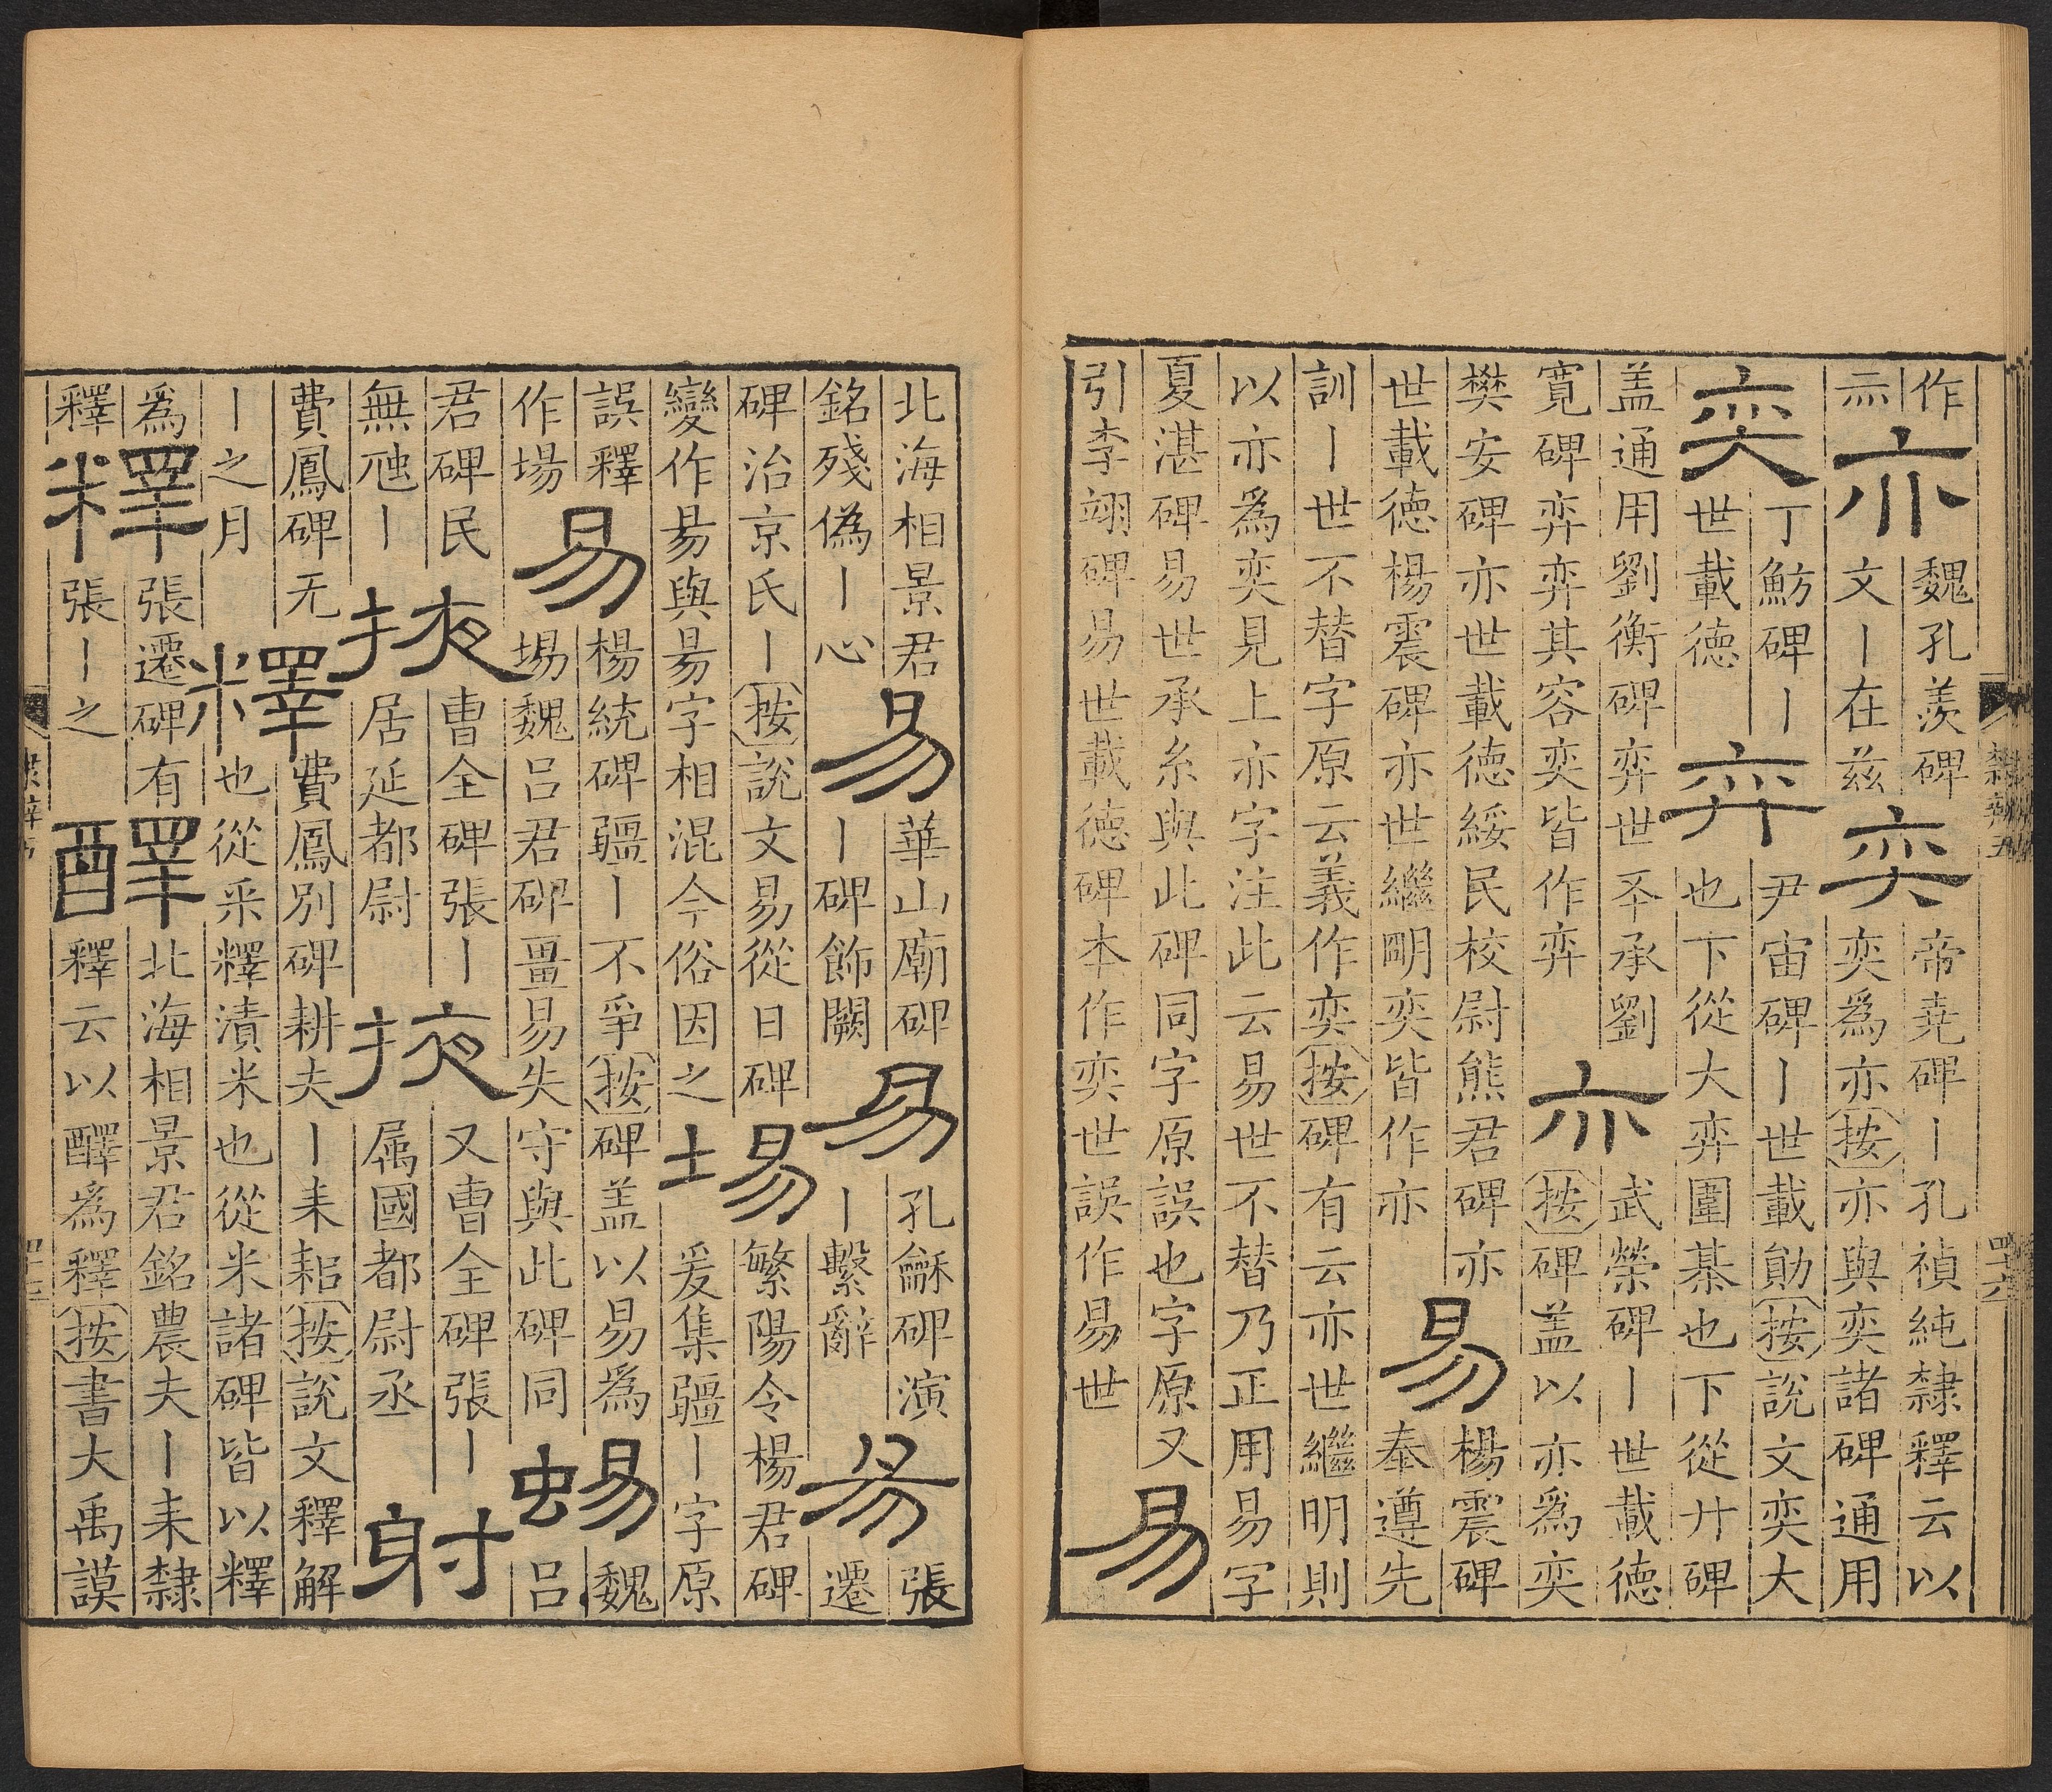 作
亦
亦
魏孔羨碑
文丨在茲
奕
帝堯碑丨孔禎純隸釋云以
奕為亦按亦與奕諸碑通用
奕
丁魴碑丨
世載德
弈
尹宙碑丨世載勛按說文奕大
也下從大弈圍棊也下從廾碑
盖通用劉衡碑弈世丕承劉
寬碑弈弈其容奕皆作弈
亦
武榮碑丨世載德
按碑盖以亦為奕
樊安碑亦世載德綏民校尉熊君碑亦
世載德楊震碑亦世繼明奕皆作亦
易
楊震碑
奉遵先
訓丨世不替字原云義作奕按碑有云亦世繼明則
以亦為奕見上亦字注此云易世不替乃正用易字
夏湛碑易世承糸與此碑同字原誤也字原又
引李翊碑易世載德碑本作奕世誤作易世
易
隸辨五
四十六
北海相景君
銘殘偽丨心
易
華山廟碑
丨碑飾闕
易
孔龢碑演
丨繫辭
昜
張
遷
碑治京氏丨按說文易從日碑
變作昜與昜字相混今俗因之
埸
繁陽令楊君碑
爰集疆丨字原
誤釋
作場
易
楊統碑疆丨不爭按碑盖以易為
埸魏呂君碑畺易失守與此碑同
蜴
魏
呂
君碑民
無虺丨
掖
曹全碑張丨
居延都尉
掖
又曹全碑張丨
屬國都尉丞
射
費鳳碑无
丨之月
釋
費鳳別碑耕夫丨耒耜按說文釋解
也從釆釋漬米也從米諸碑皆以釋
為
釋
釋
張遷碑有
張丨之
醳
北海相景君銘農夫丨耒隸
釋云以醳為釋按書大禹謨
隸辨五
四十七